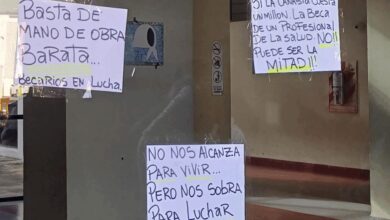 BASTA DE
MANO DE OBRA
BARATA...
BECARIOS EN LUCHA.
SI LA CANASTA CUESTA
UN MILLON. LA BECA
DE UN PROFESIONAL
DE LA SALUD NO!!
PUEDE SER LA
MITAD!!
NO NOS ALCANZA
PARA VIVIR...
PERO NOS SOBRA
PARA LUCHAR